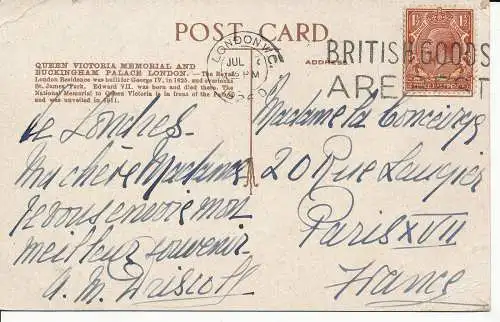 POST CARD
QUEEN VICTORIA MEMORIAL AND
BUCKINGHAM PALACE LONDON.—The Royal
London Residence was built for George IV. in 1825, and overlooks
St. James' Park. Edward VII. was born and died there. The
National Memorial to Queen Victoria is in front of the Palace
and was unveiled in 1911.
ADDRESS
LONDON W.C.
JUL
PM
BRITISH GOODS
ARE BEST
de Londres
Ma chère Madame
Je vous envoie mon
meilleur souvenir
A. M. Driscoll
Madame la Concierge
20 Rue Laugier
Paris XVII
France